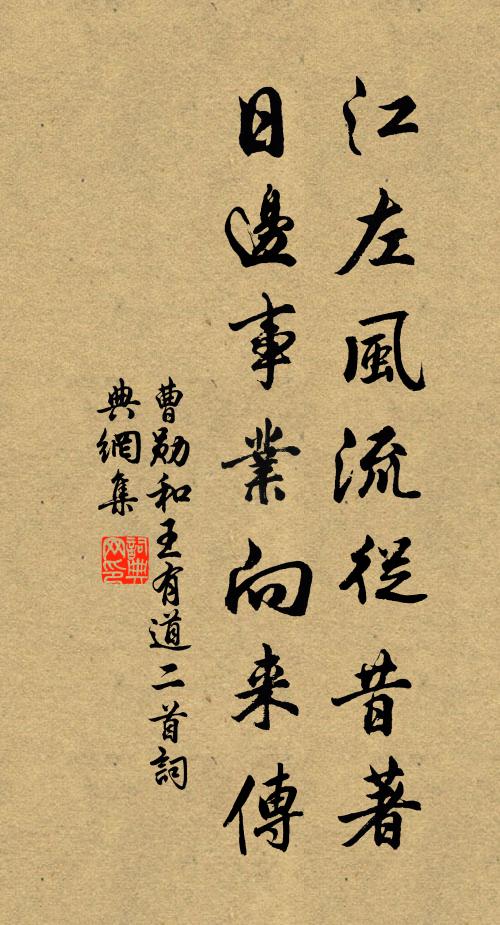 江左風流從昔著
日邊事業向来傳
曹勛和王有道二首詞
典網集
詞典網印